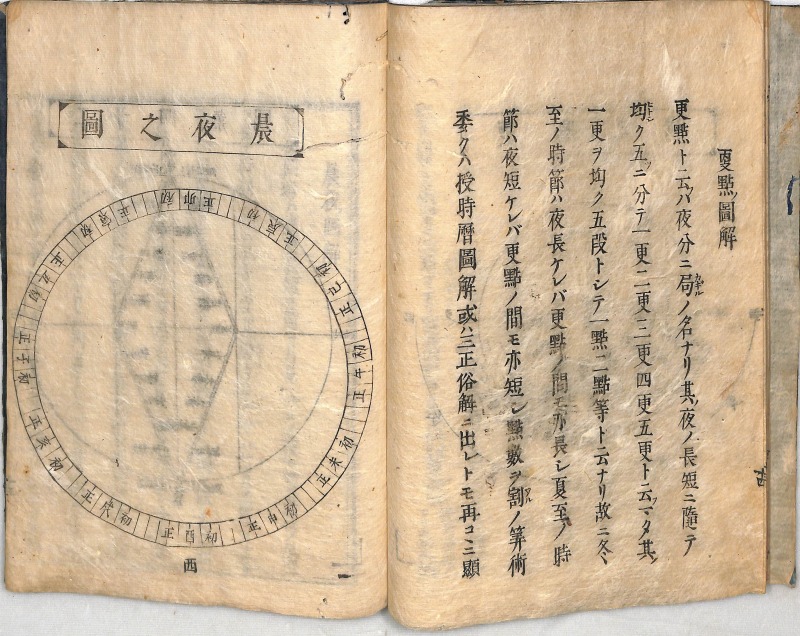 更點ノ圖解
更點ト云ハ夜分ニ局ル名ナリ其夜ノ長短ニ隨テ
均ク五ニ分テ一更二更三更四更五更ト云マタ其
一更ヲ均ク五段トシテ一點二點等ト云ナリ故ニ冬
至ノ時節ハ夜長ケレバ更點ノ間モ亦長シ夏至ノ時
節ハ夜短ケレバ更點ノ間モ亦短シ點數ヲ割ノ筭術
委クハ授時曆圖解或ハ三正俗解ニ出レトモ再コヽニ顯
晨夜之圖
初卯正
初辰正
初巳正
初午正
初未正
初申正
初酉正
初戌正
初亥正
初子正
初丑正
初寅正
西